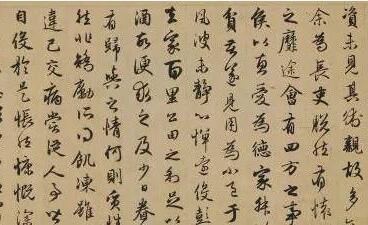 資未見其術親故多
余為長吏脫然有懷
之靡途會有四方之事
侯以惠愛為德家叔
貧苦遂見用為小邑于
風波未靜心憚遠役彭
去家百里公田之利足以
酒故便求之及少日眷
有歸與之情何則質性
然非矯勵所得飢凍雖
違己交病嘗從人事皆
自役於是悵然慷慨深